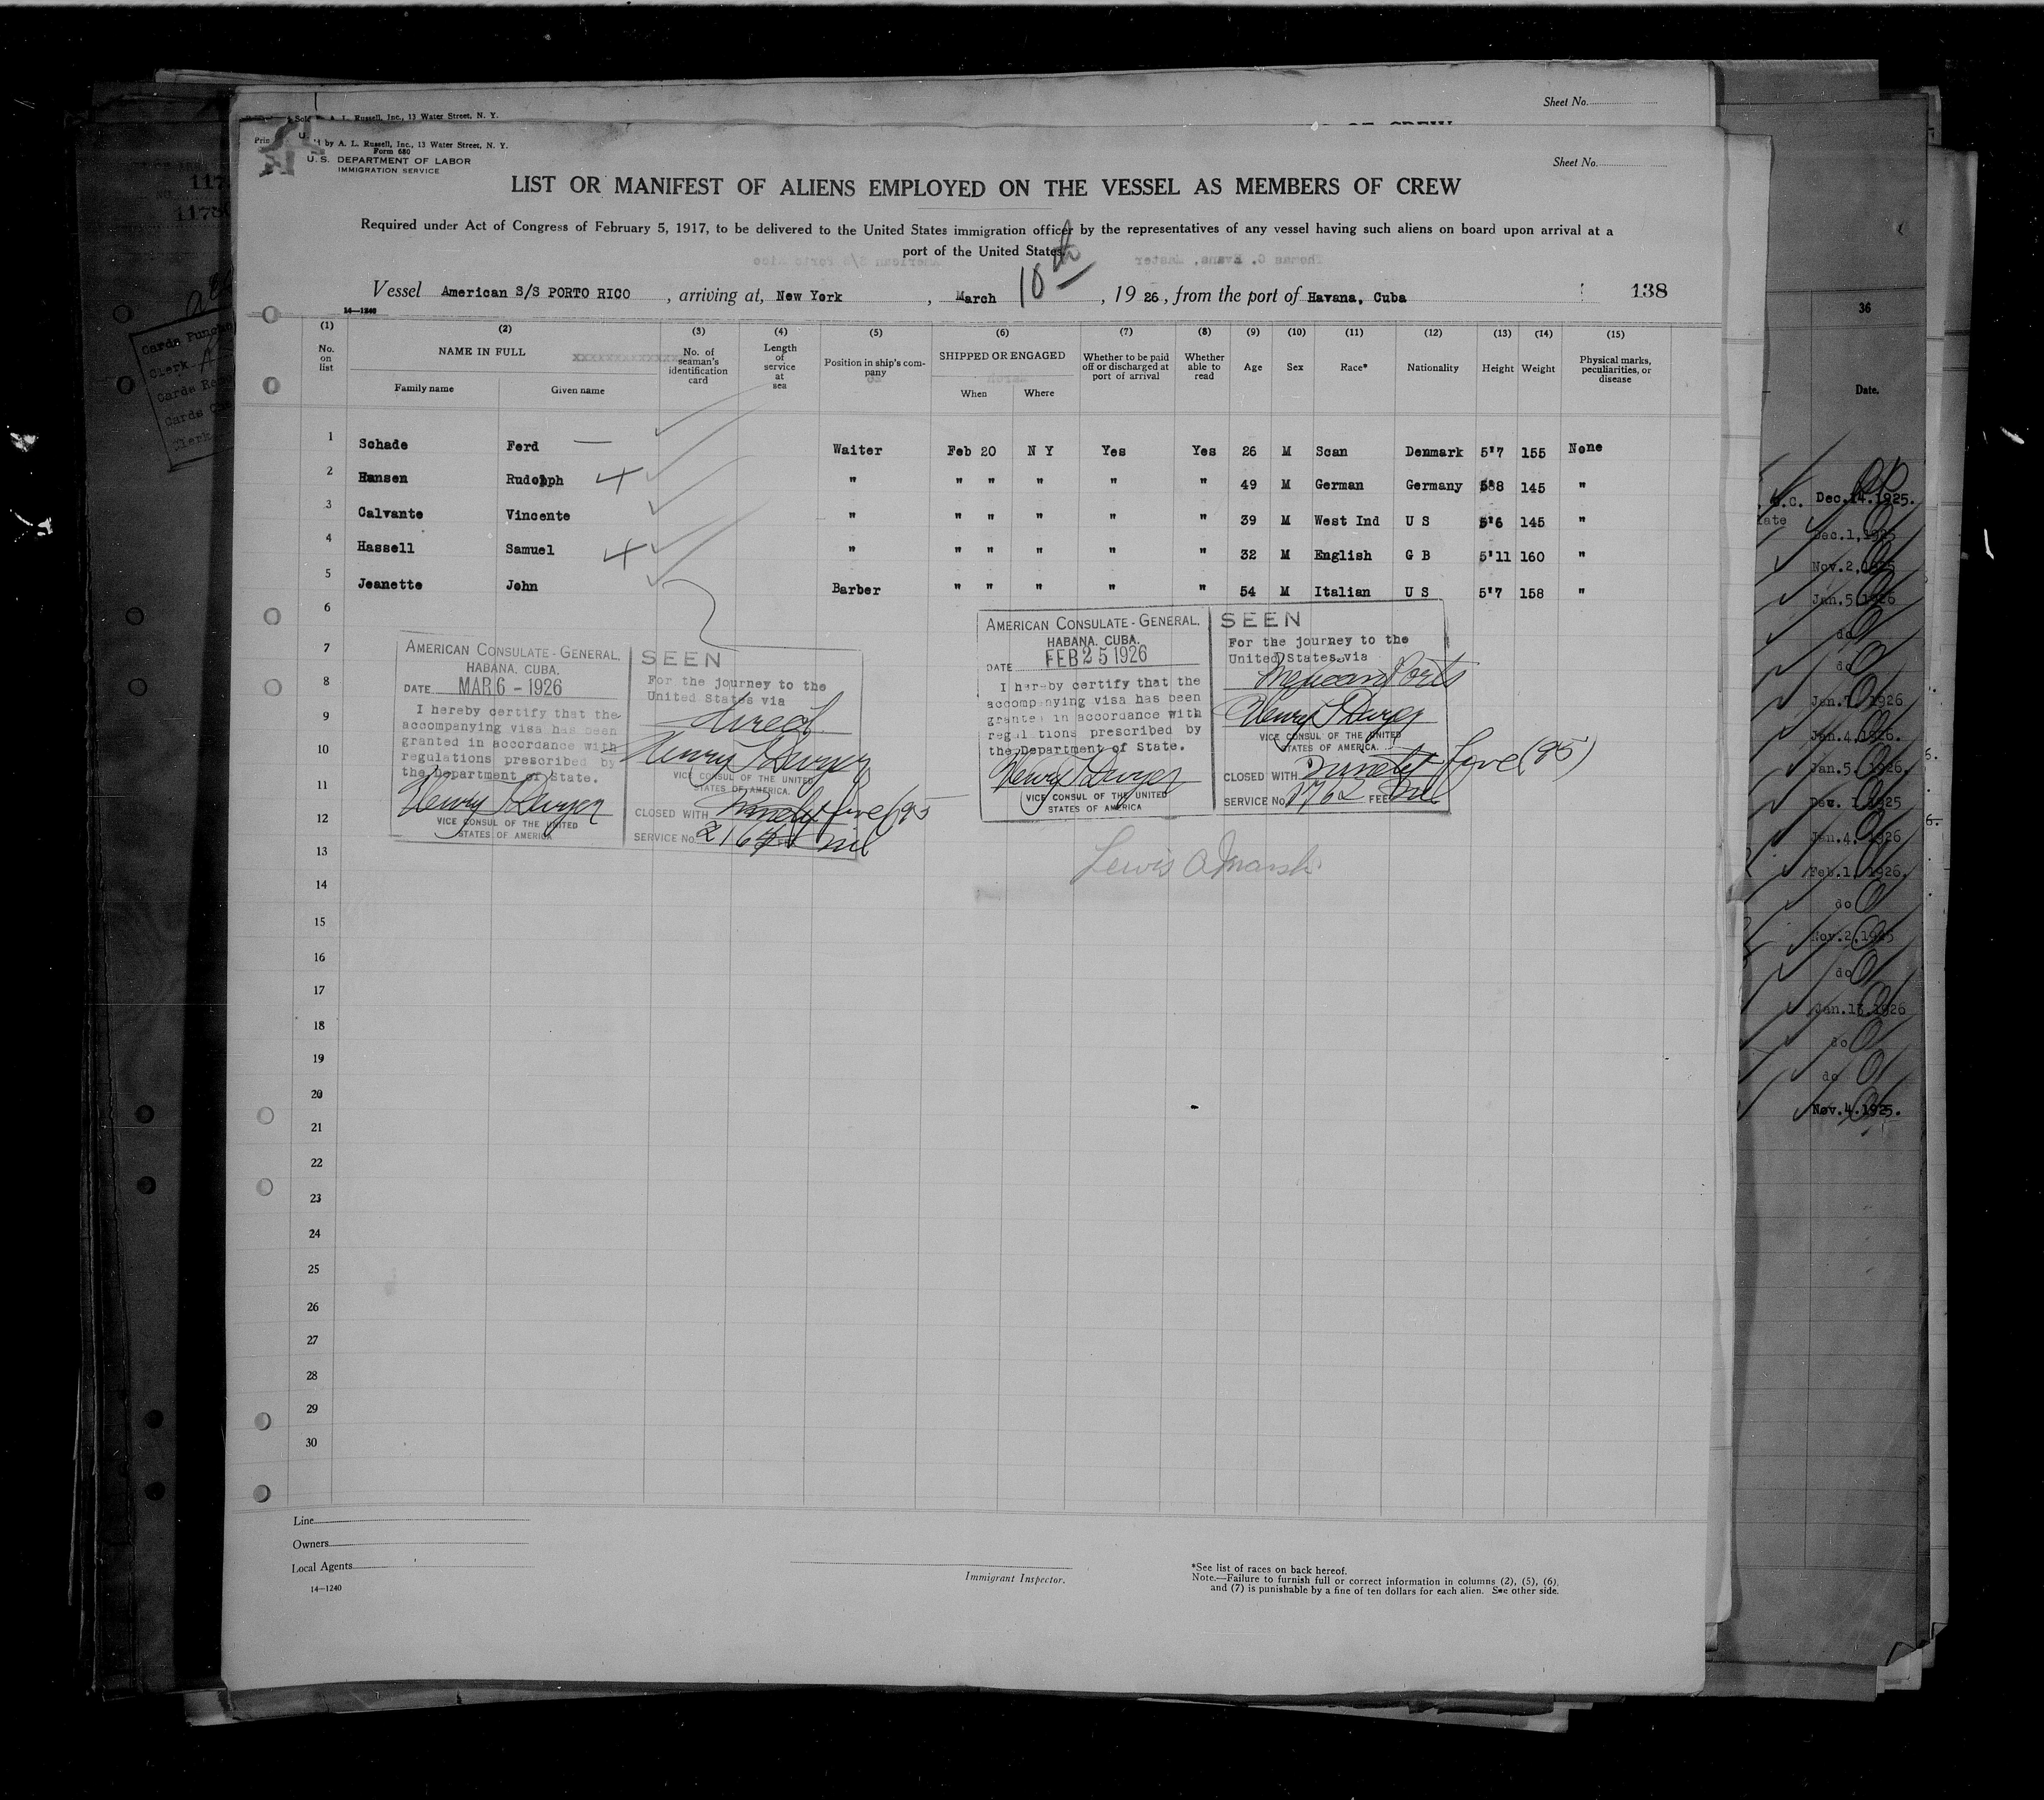 Sheet No.
A. L. Russell, Inc., 13 Water Street, N. Y.
by A. L. Russell, Inc., 13 Water Street, N. Y.
Form 680
U. S. DEPARTMENT OF LABOR
IMMIGRATION SERVICE
Sheet No.
LIST OR MANIFEST OF ALIENS EMPLOYED ON THE VESSEL AS MEMBERS OF CREW
Required under Act of Congress of February 5, 1917, to be delivered to the United States immigration officer by the representatives of any vessel having such aliens on board upon arrival at a
port of the United States
Vessel American S/S PORTO RICO, arriving at, New York, March 10th, 1926, from the port of Havana, Cuba 138
14—1240
(1) (2) (3) (4) (5) (6) (7) (8) (9) (10) (11) (12) (13) (14) (15)
No. on list NAME IN FULL No. of seaman's identification card Length of service at sea Position in ship's company SHIPPED OR ENGAGED Whether to be paid off or discharged at port of arrival Whether able to read Age Sex Race* Nationality Height Weight Physical marks, peculiarities, or disease
Family name Given name When Where
1 Schade Ferd — Waiter Feb 20 N Y Yes Yes 26 M Scan Denmark 5'7 155 None
2 Hansen Rudolph " " " " " " 49 M German Germany 5'8 145 "
3 Calvante Vincente " " " " " " 39 M West Ind U S 5'6 145 "
4 Hassell Samuel " " " " " " 32 M English G B 5'11 160 "
5 Jeanette John Barber " " " " " 54 M Italian U S 5'7 158 "
6
7
8
9
10
11
12
13
14
15
16
17
18
19
20
21
22
23
24
25
26
27
28
29
30
AMERICAN CONSULATE-GENERAL.
HABANA, CUBA.
DATE MAR 6 - 1926
I hereby certify that the
accompanying visa has been
granted in accordance with
regulations prescribed by
the Department of State.
Henry T Dwyer
VICE CONSUL OF THE UNITED
STATES OF AMERICA
SEEN
For the journey to the
United States via
direct
Henry T Dwyer
VICE CONSUL OF THE UNITED
STATES OF AMERICA.
CLOSED WITH Ninety five (95
SERVICE No. 2164 nil
AMERICAN CONSULATE-GENERAL.
HABANA, CUBA.
DATE FEB 25 1926
I hereby certify that the
accompanying visa has been
granted in accordance with
regulations prescribed by
the Department of State.
Henry T Dwyer
VICE CONSUL OF THE UNITED
STATES OF AMERICA
SEEN
For the journey to the
United States via
Mexican Ports
Henry T Dwyer
VICE CONSUL OF THE UNITED
STATES OF AMERICA.
CLOSED WITH Ninety five (95)
SERVICE No. 1762 FEE nil
Lewis A Marsh
Line
Owners
Local Agents
14—1240
Immigrant Inspector.
*See list of races on back hereof.
Note.—Failure to furnish full or correct information in columns (2), (5), (6),
and (7) is punishable by a fine of ten dollars for each alien. See other side.
36
Date.
Dec.14.1925.
Dec.1,1925
Nov.2,1925
Jan.5,1926
do
do
Jan.7,1926
Jan.4,1926.
Jan.5,1926.
Dec. 1,1925
Jan.4,1926
Feb.1,1926.
do
Nov.2,1925
do
Jan.13,1926
do
do
Nov.4.1925.